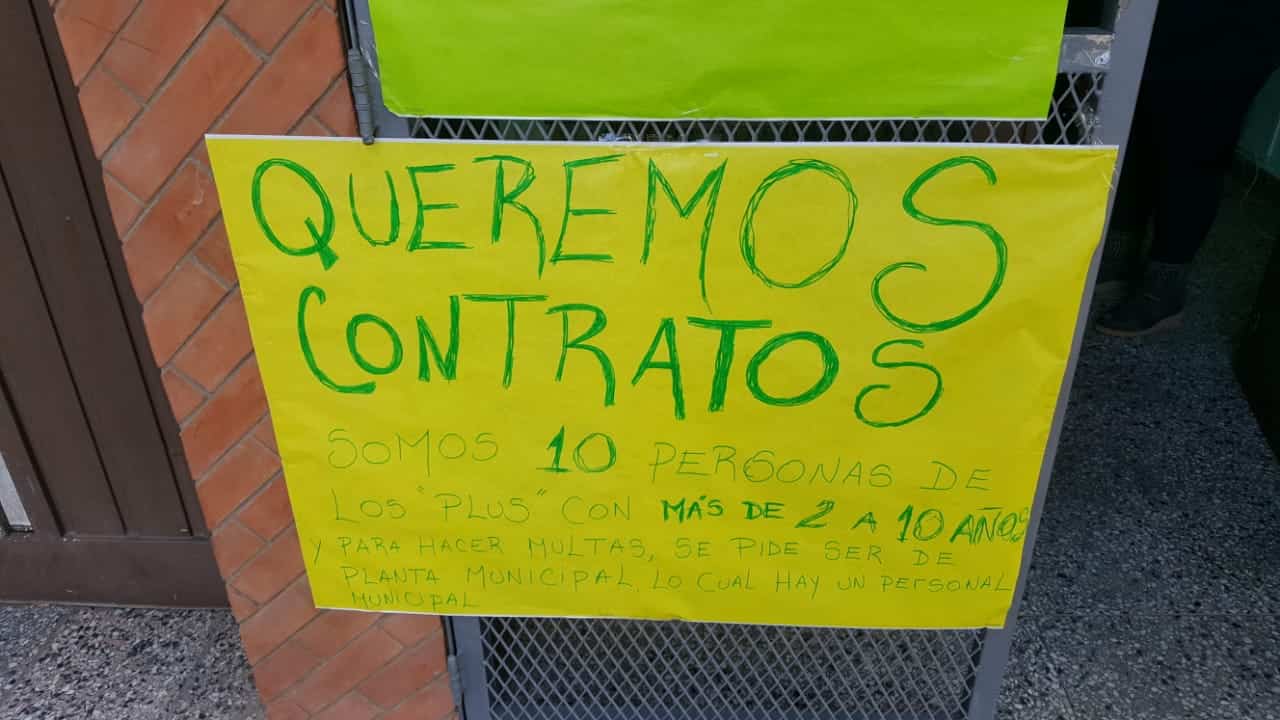 QUEREMOS
CONTRATOS
SOMOS 10 PERSONAS DE
LOS "PLUS" CON MÁS DE 2 A 10 AÑOS
Y PARA HACER MULTAS, SE PIDE SER DE
PLANTA MUNICIPAL, LO CUAL HAY UN PERSONAL
MUNICIPAL